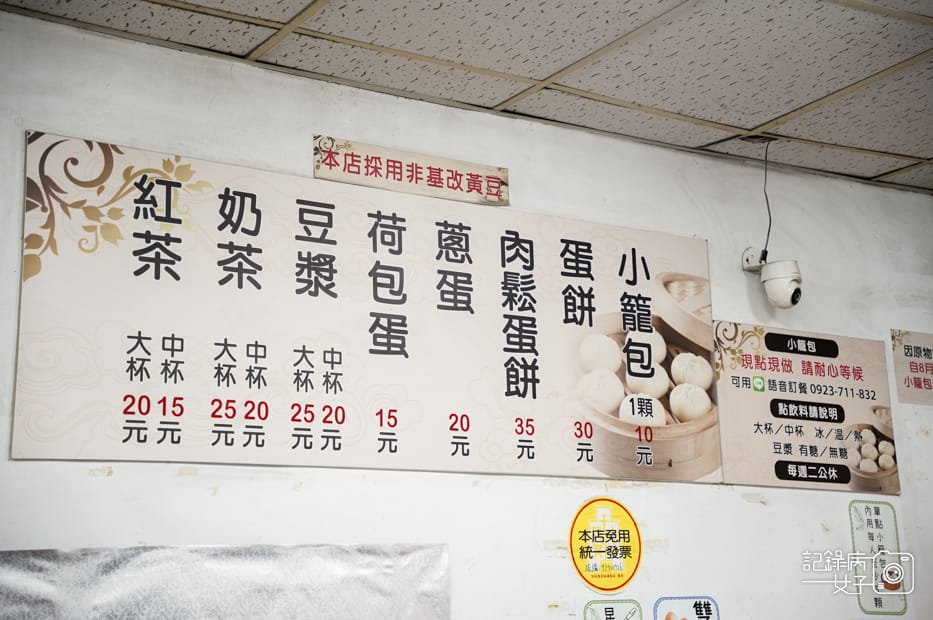 本店採用非基改黃豆
小籠包 1顆 10元
蛋餅 30元
肉鬆蛋餅 35元
蔥蛋 20元
荷包蛋 15元
豆漿 中杯 20元 大杯 25元
奶茶 中杯 20元 大杯 25元
紅茶 中杯 15元 大杯 20元
小籠包
現點現做 請耐心等候
可用 語音訂餐 0923-711-832
點飲料請說明
大杯／中杯 冰／溫／熱
豆漿 有糖／無糖
每週二公休
因原物
自8月
小籠包
本店免用
統一發票
單點小
內用每人
顆
雙
記錄病
女子